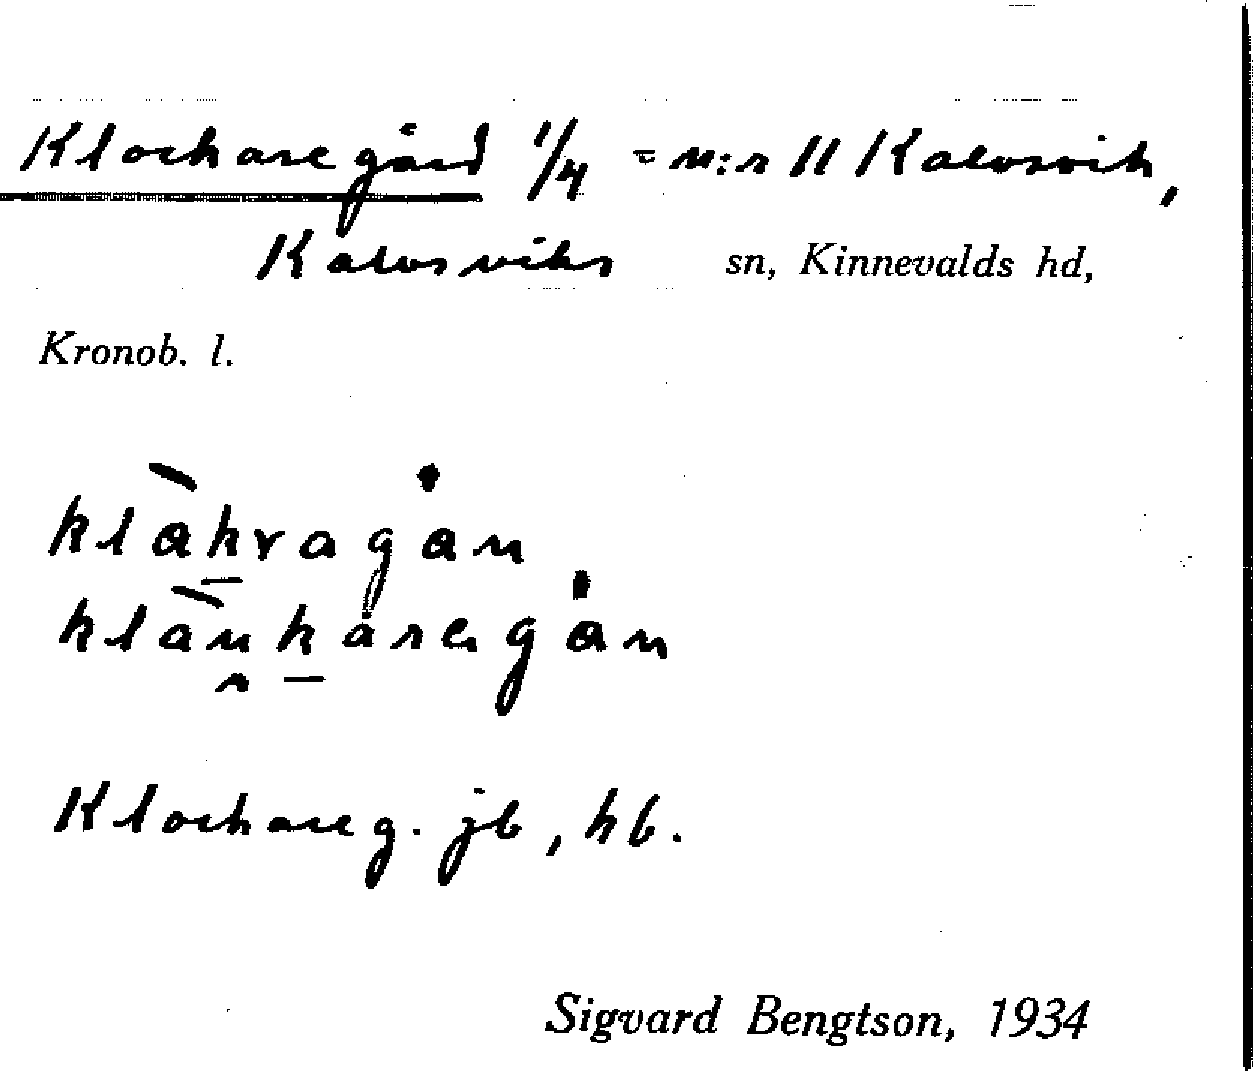 Klockaregård 1/4 = n:r 11 Kalvsvik,
Kalvsviks sn, Kinnevalds hd,
Kronob. l.
klåkragån
Klockareg. jb, hb.
Sigvard Bengtson, 1934